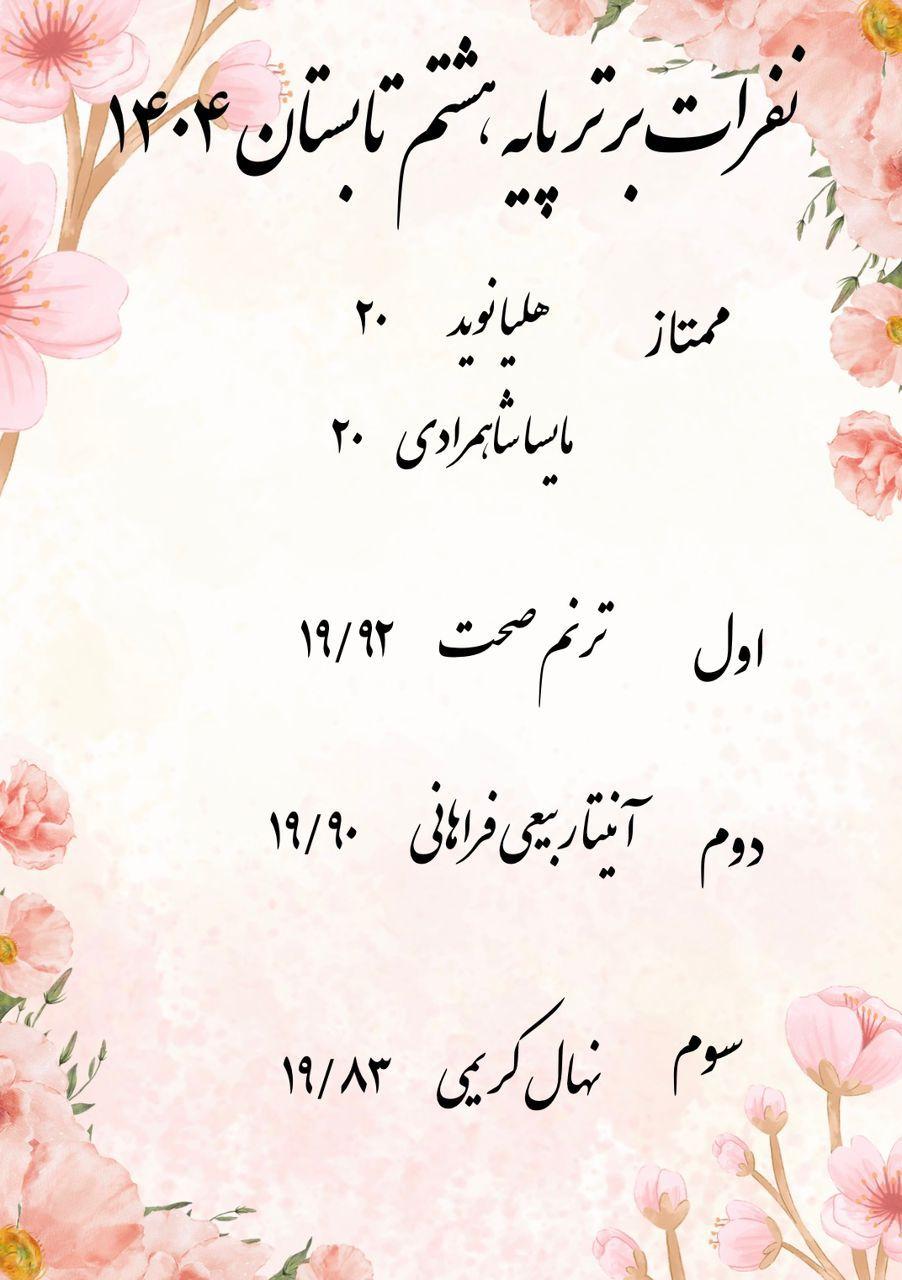 نفرات برتر پایه هشتم تابستان ۱۴۰۴
ممتاز هلیا نوید ۲۰
مایسا شاهمرادی ۲۰
اول ترنم صحت ۱۹/۹۲
دوم آنیتا ربیعی فراهانی ۱۹/۹۰
سوم نهال کریمی ۱۹/۸۳